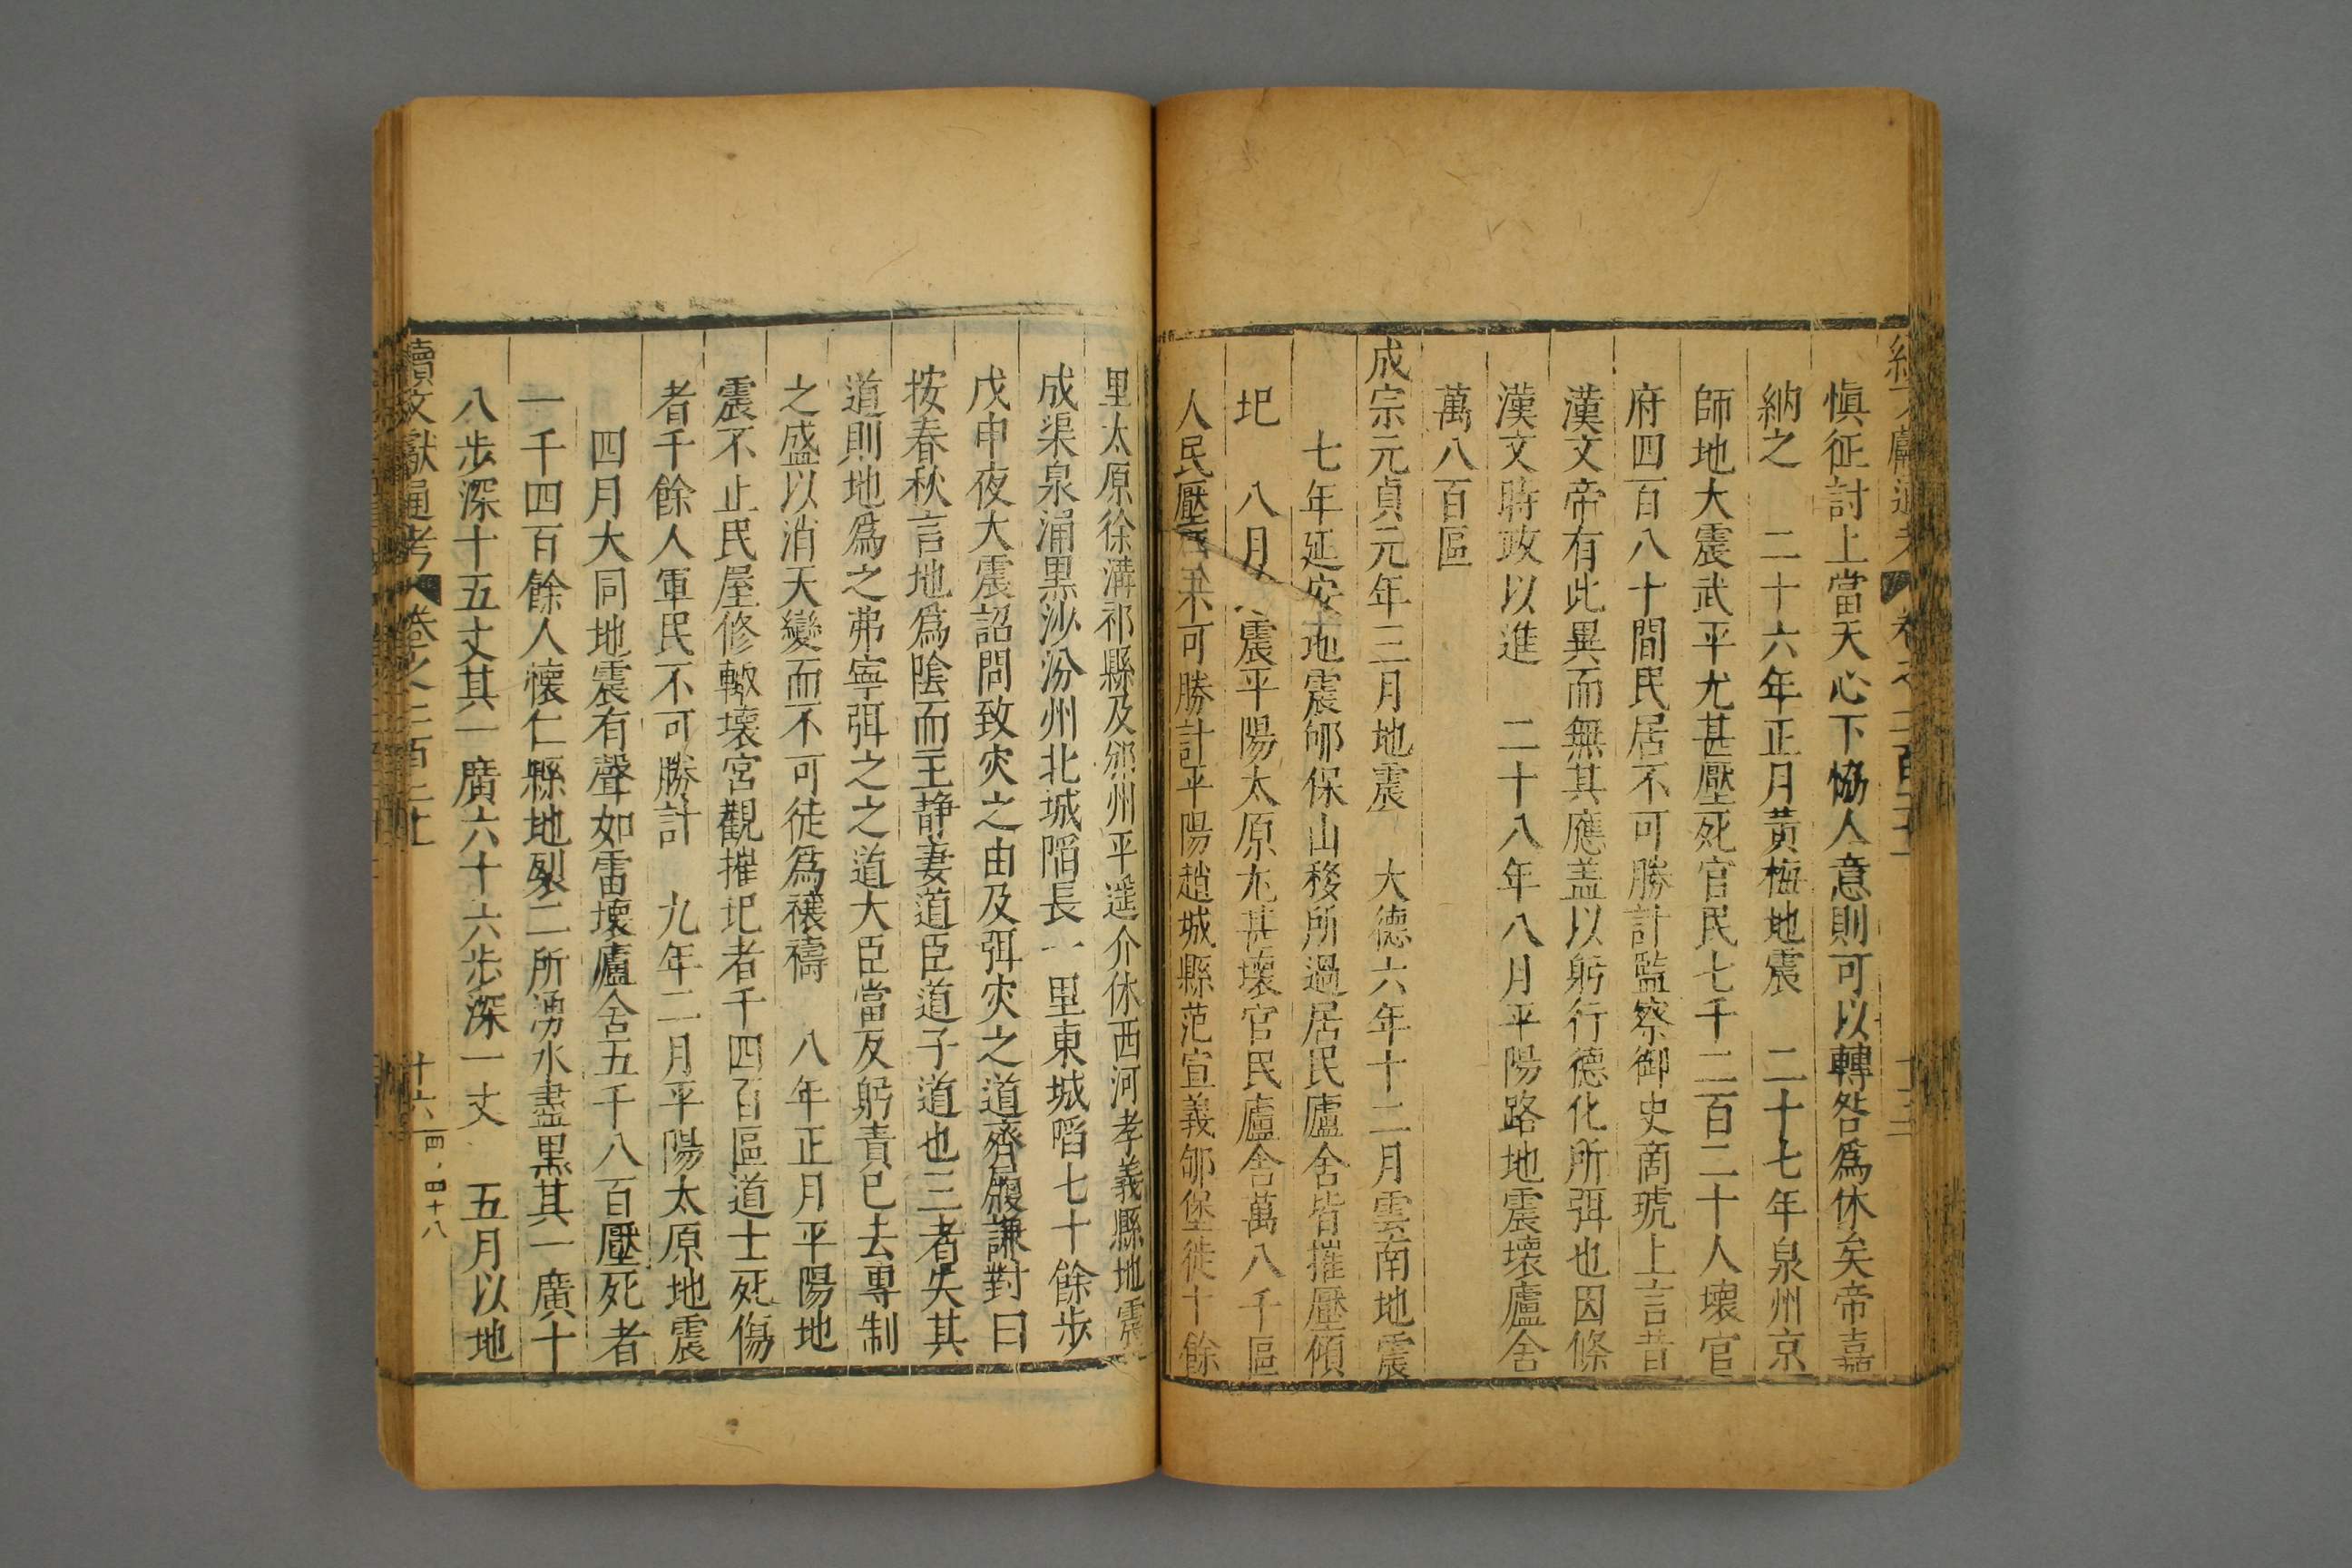 慎征討上當天心下恊人意則可以轉咎爲休矣帝嘉
納之　二十六年正月黃梅地震　二十七年泉州京
師地大震武平尤甚壓死官民七千二百二十人壞官
府四百八十間民居不可勝計監察御史商琥上言昔
漢文帝有此異而無其應盖以躬行德化所弭也因條
漢文時政以進　二十八年八月平陽路地震壞廬舍
萬八百區
成宗元貞元年三月地震　大德六年十二月雲南地震
七年延安地震邠保山移所過居民廬舍皆摧壓傾
圮　八月　震平陽太原尤甚壞官民廬舍萬八千區
人民壓　不可勝計平陽趙城縣范宣義郇堡徙十餘
里太原徐溝祁縣及汾州平遥介休西河孝義縣地震
成渠泉涌黑沙汾州北城陷長一里東城陷七十餘步
戊申夜大震詔問致灾之由及弭灾之道齊履謙對曰
按春秋言地爲隂而主静妻道臣道子道也三者失其
道則地爲之弗寧弭之之道大臣當反躬責已去專制
之盛以消天變而不可徒爲禳禱　八年正月平陽地
震不止民屋修輙壞宮觀摧圮者千四百區道士死傷
者千餘人軍民不可勝計　九年二月平陽太原地震
四月大同地震有聲如雷壞廬舍五千八百壓死者
一千四百餘人懷仁縣地裂二所湧水盡黑其一廣十
八步深十五丈其一廣六十六步深一丈　五月以地
續文獻通考　卷之二百二十　十六　四、四十八